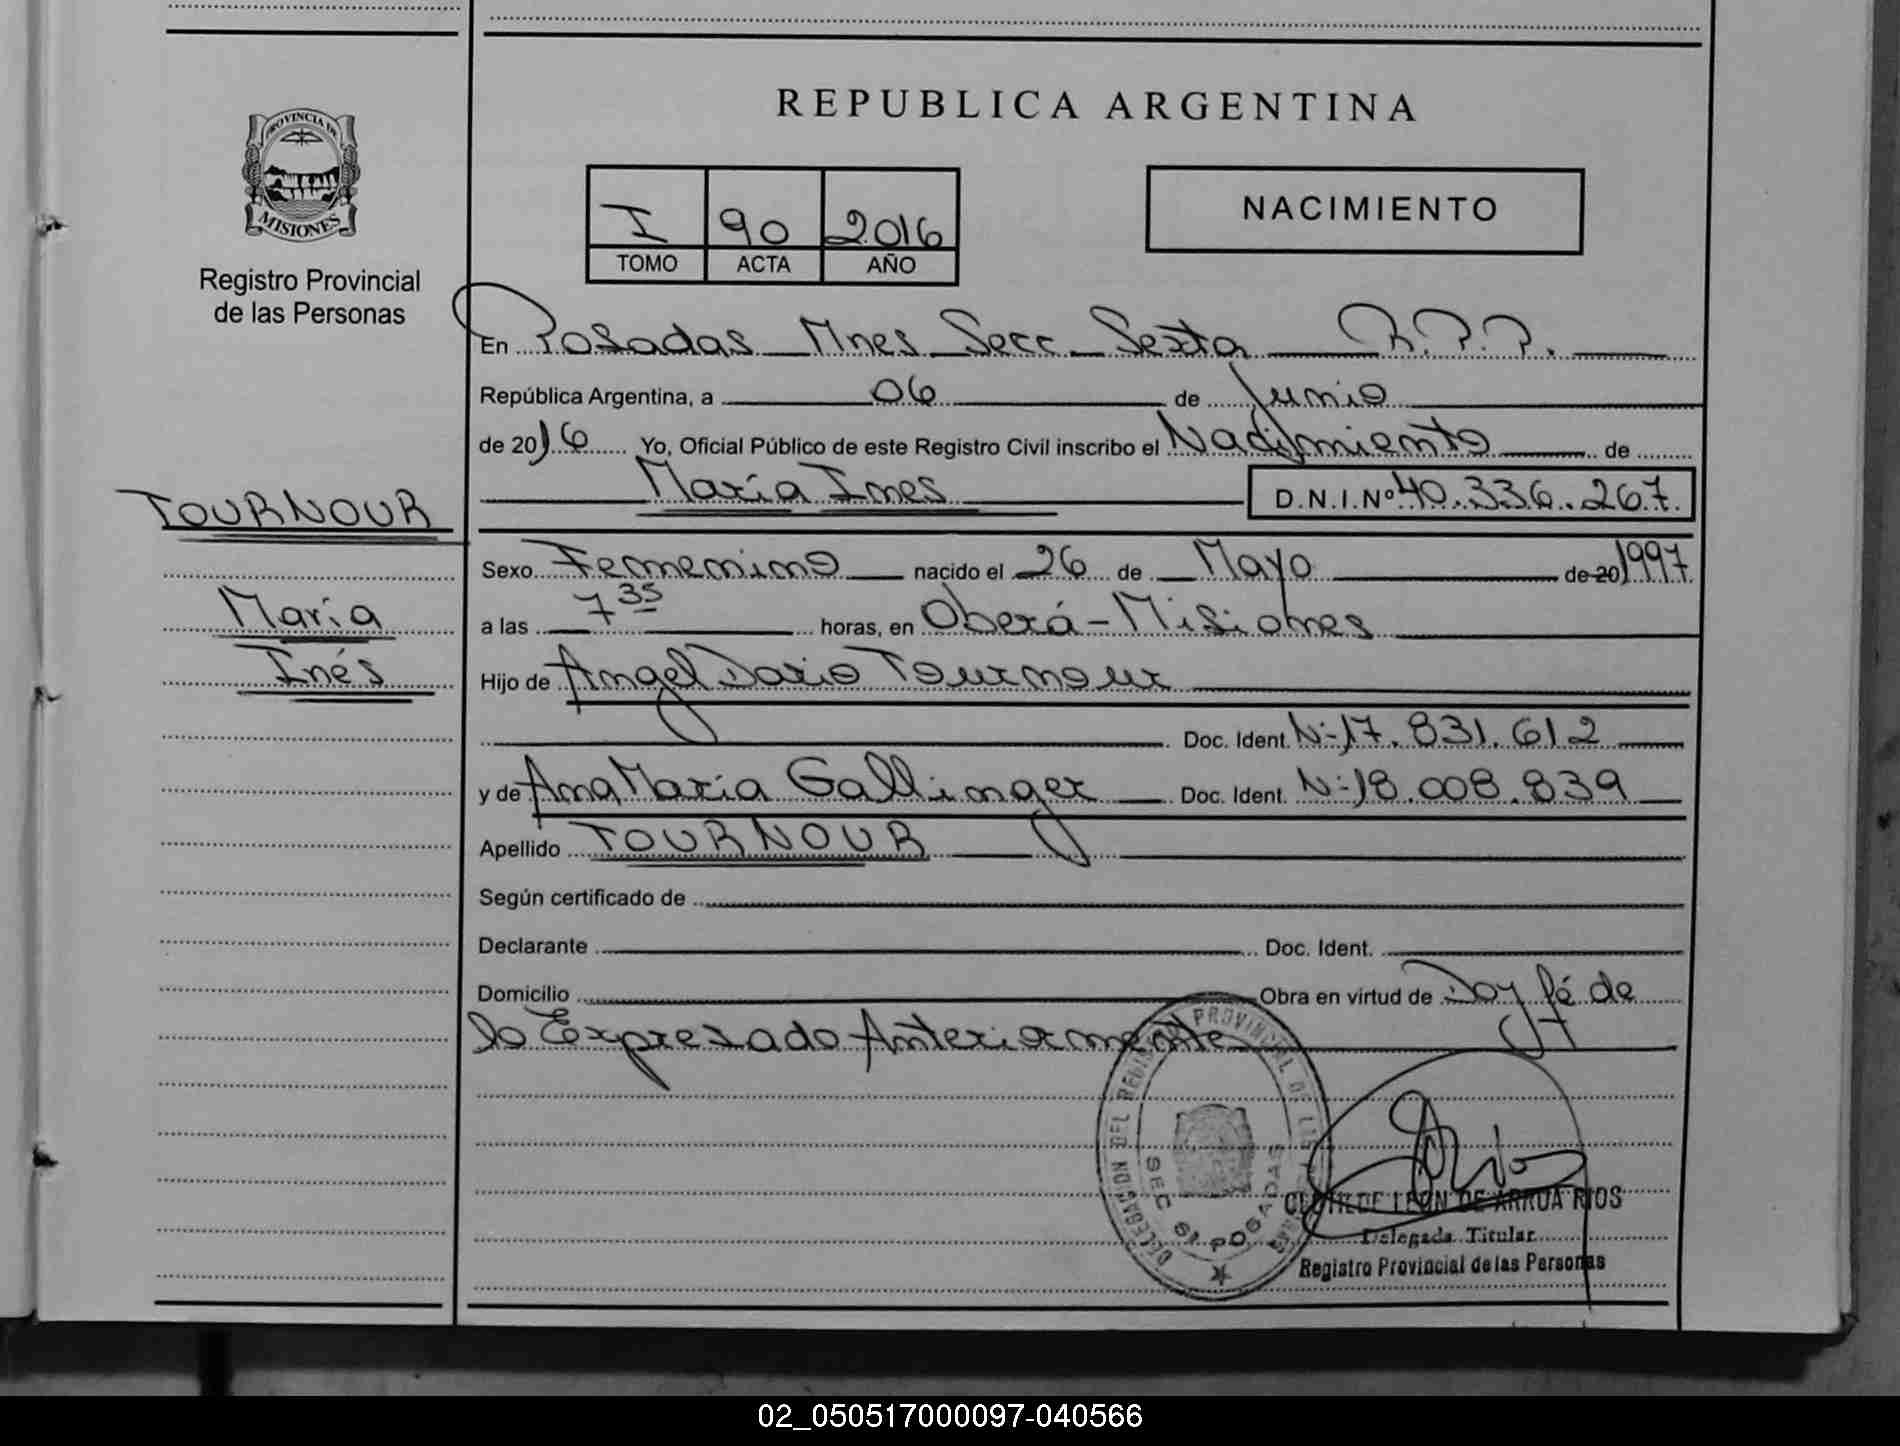 REPUBLICA ARGENTINA
PROVINCIA DE
MISIONES
Registro Provincial
de las Personas
I 90 2016
TOMO ACTA AÑO
NACIMIENTO
En Posadas Mnes Secc Sexta R.P.P.
República Argentina, a 06 de Junio
de 2016 Yo, Oficial Público de este Registro Civil inscribo el Nacimiento de
María Ines D.N.I.Nº 40.336.267.
TOURNOUR
María
Inés
Sexo Femenino nacido el 26 de Mayo de 20 1997
a las 7 35 horas, en Oberá - Misiones
Hijo de Angel Dario Tournour
Doc. Ident. Nº 17.831.612
y de Ana María Gallinger Doc. Ident. Nº 18.008.839
Apellido TOURNOUR
Según certificado de
Declarante Doc. Ident.
Domicilio Obra en virtud de Doy fé de
lo Expresado Anteriormente
DELEGACION DEL REGISTRO PROVINCIAL DE LAS PERSONAS
SEC 6ª POSADAS
CLOTILDE LEON DE ARRUA RIOS
Delegada Titular
Registro Provincial de las Personas
02_050517000097-040566